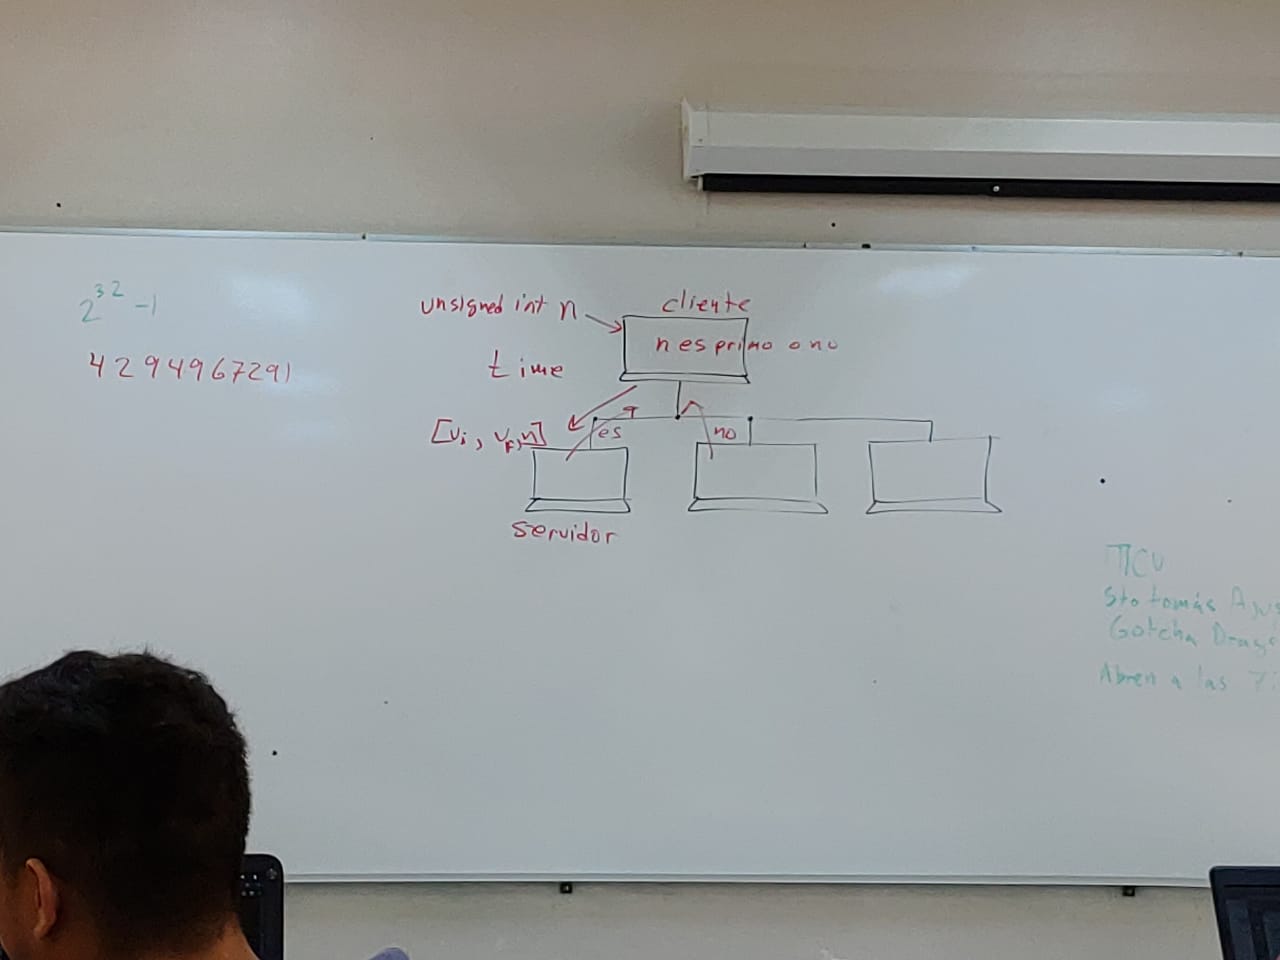 2^32 -1
4294967291
unsigned int n
cliente
n es primo o no
time
[vi, vf, n]
es
no
servidor
Sto tomás
Gotcha
Abren a las 7: